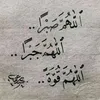 اللهم صبرًا..
اللهم جبرًا..
اللهم قوة..